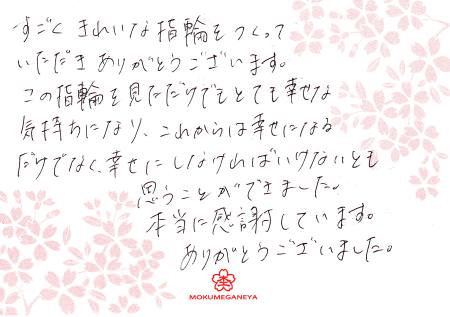 すごく きれいな指輪をつくって
いただき ありがとうございます。
この指輪を見ただけでもとても幸せな
気持ちになり、これからは幸せになる
だけでなく、幸せにしなければいけないとも
思うことができました。
本当に感謝しています。
ありがとうございました。
MOKUMEGANEYA